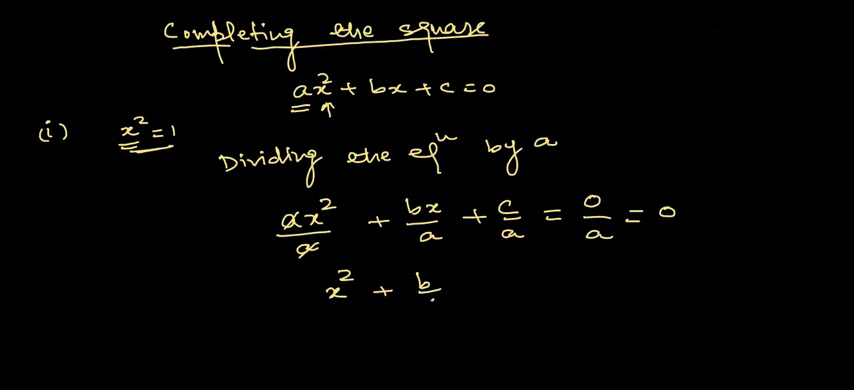 Completing the square
ax² + bx + c = 0
(i) x² = 1
Dividing the eqⁿ by a
ax²/a + bx/a + c/a = 0/a = 0
x² + b/